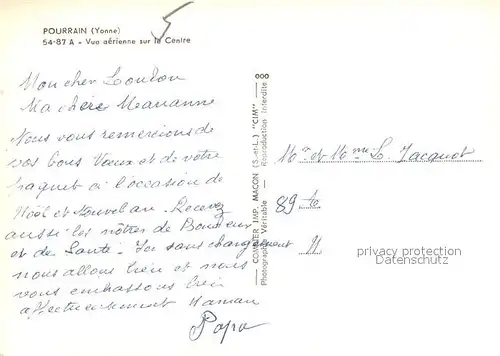 POURRAIN (Yonne)
54-87 A - Vue aérienne sur le Centre
5
Mon cher Loulou
Ma chère Marianne
Nous vous remercions de
vos bons Vœux et de votre
paquet à l'occasion de
Noël et Nouvel an. Recevez
aussi les nôtres de Bonheur
et de Santé. Ici sans changement
nous allons bien et nous
vous embrassons bien
affectueusement Maman
Papa
COMBIER IMP. MACON (S.-et-L.) "CIM"
Photographie Véritable - Reproduction Interdite
Mr et Mme L. Jacquot
89
privacy protection
Datenschutz